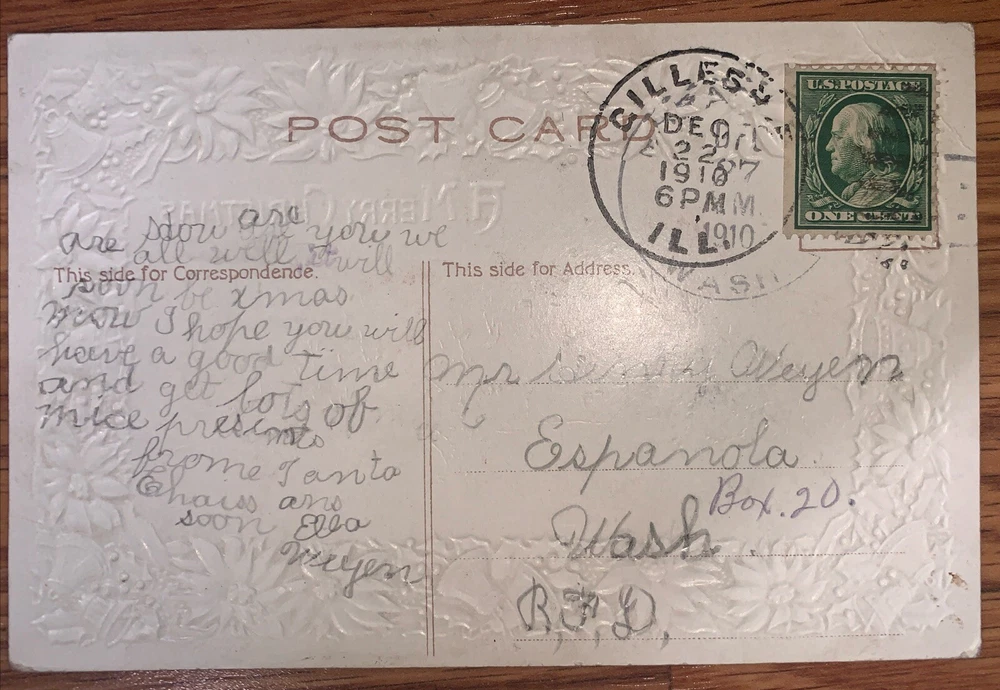 POST CARD
GILLES
ILL.
DEC
22
1910
6 PM
1910
WASH
U.S. POSTAGE
ONE CENT
are you are you we
are all well it will
This side for Correspondence.
soon be xmas
now I hope you will
have a good time
and get lots of
nice presents
frome Santa
ans
soon Ella
Weyen
This side for Address.
Mr Weyen
Espanola
Box. 20.
Wash.
R, F, D,
A MERRY CHRISTMAS